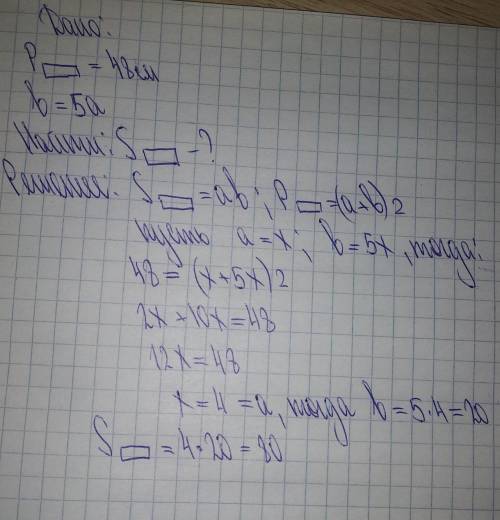 Дано:
P▭ = 48см
b = 5a
Найти: S▭ - ?
Решение: S▭ = ab; P▭ = (a+b)2
пусть a = x; b = 5x, тогда:
48 = (x+5x)2
2x+10x=48
12x=48
x=4=a, тогда b=5·4=20
S▭ = 4·20=80